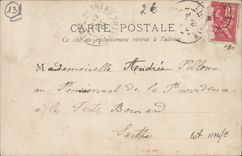 13
2€
CARTE POSTALE
Ce côté est exclusivement réservé à l'adresse
Mademoiselle Andréa
au Pensionnat de la Providence
à la Ferté Bernard
Sarthe